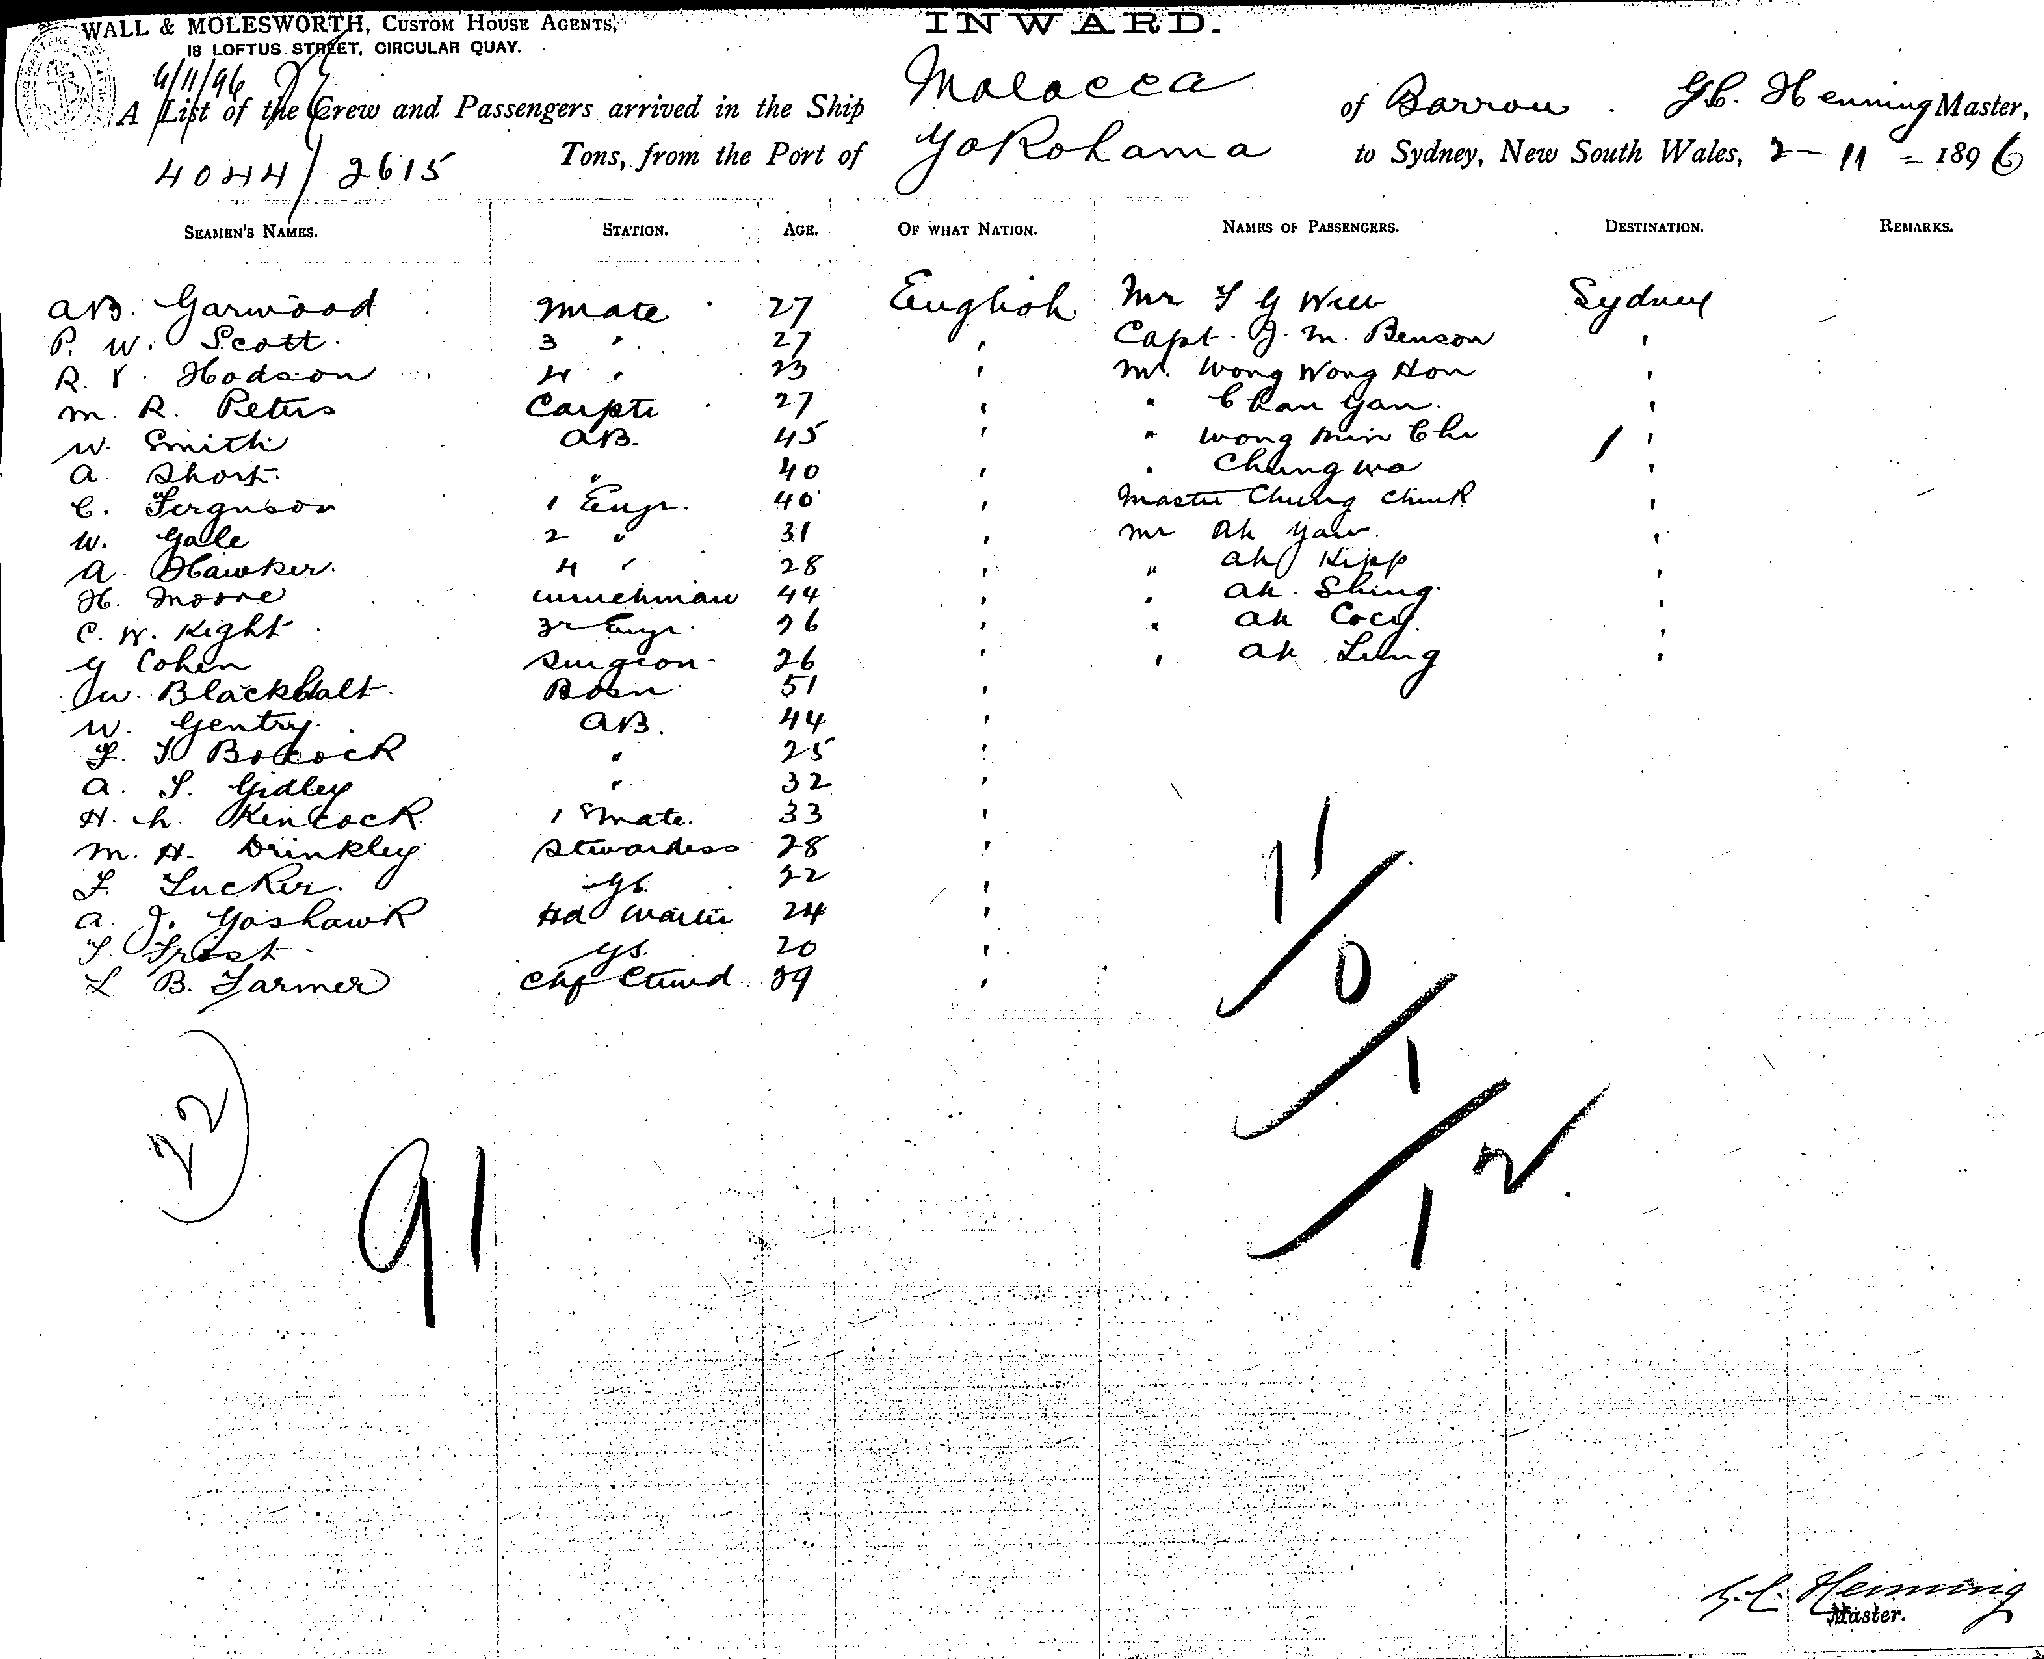 WALL & MOLESWORTH, CUSTOM HOUSE AGENTS,
18 LOFTUS STREET, CIRCULAR QUAY.
INWARD.
4/11/96
A List of the Crew and Passengers arrived in the Ship Malacca of Barrow G.C. Henning Master,
4044/2615 Tons, from the Port of Yokohama to Sydney, New South Wales, 2 - 11 - 1896
SEAMEN'S NAMES. STATION. AGE. OF WHAT NATION. NAMES OF PASSENGERS. DESTINATION. REMARKS.
A.B. Garwood Mate 27 English Mr F G Sydney
P. W. Scott 3 " 27 " Capt. J. M. Benson "
R. V. Hodson 4 " 23 " Mr. Wong Wong Hon "
M. R. Peters Carptr 27 " " Chan Yan "
W. Smith AB. 45 " " Wong Min Chi "
A. Short " 40 " " Chung Wa "
C. Ferguson 1 Engr. 40 " Master Chung Chuck "
W. Gale 2 " 31 " Mr Ah Yaw "
A. Hawker 4 " 28 " " Ah Kipp "
H. Moore Winchman 44 " " Ah Shing "
C. W. Kight 3r Engr. 26 " " Ah Cocy "
G Cohen Surgeon 26 " " Ah Lung "
W. Blackhalt Bosn 51 "
W. Gentry AB. 44 "
F. J. Bocock " 25 "
A. S. Gidley " 32 "
H. h. Kincock 1 Mate. 33 "
M. H. Drinkley Stewardess 28 "
F. Tucker GS 22 "
A. J. Goshawk Hd Waiter 24 "
F. Frost GS 20 "
L B. Farmer Chf Stewd 39 "
22
91
11
0
1
12
G. C. Henning
Master.